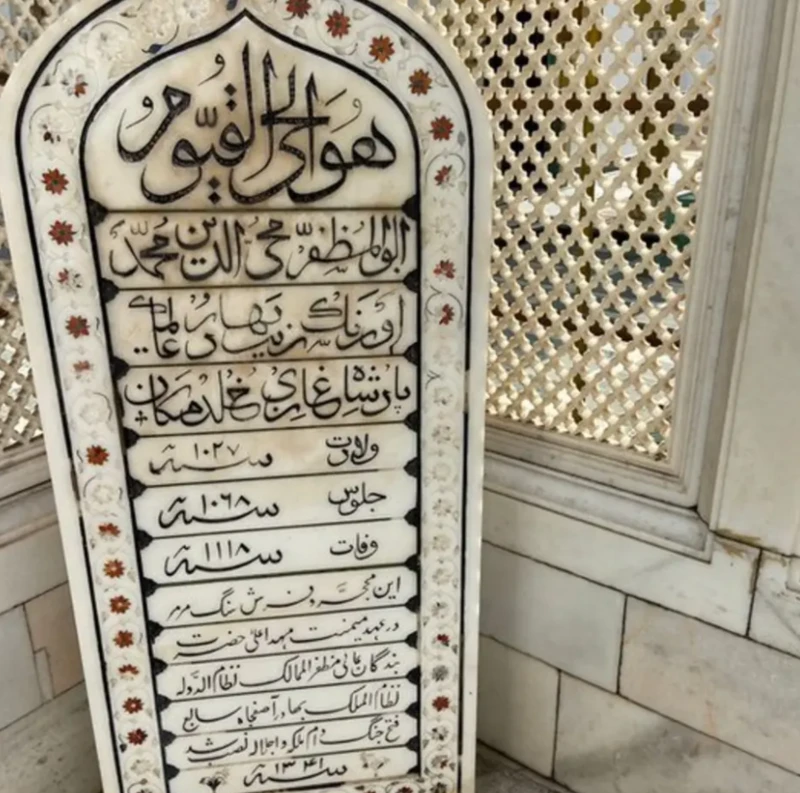 هو الحی القیوم
ابو المظفر محی الدین محمد
اورنگ زیب بهادر عالمگیر
پادشاه غازی خلد مکان
ولادت سنه ۱۰۲۷
جلوس سنه ۱۰۶۸
وفات سنه ۱۱۱۸
این محجر و فرش سنگ مرمر
در عهد میمنت مهد اعلی حضرت
بندگان عالی مظفر الممالک نظام الدوله
نظام الملک بهادر آصفجاه سابع
فتح جنگ دام ملکه و اجلاله نصب شد
سنه ۱۳۴۱